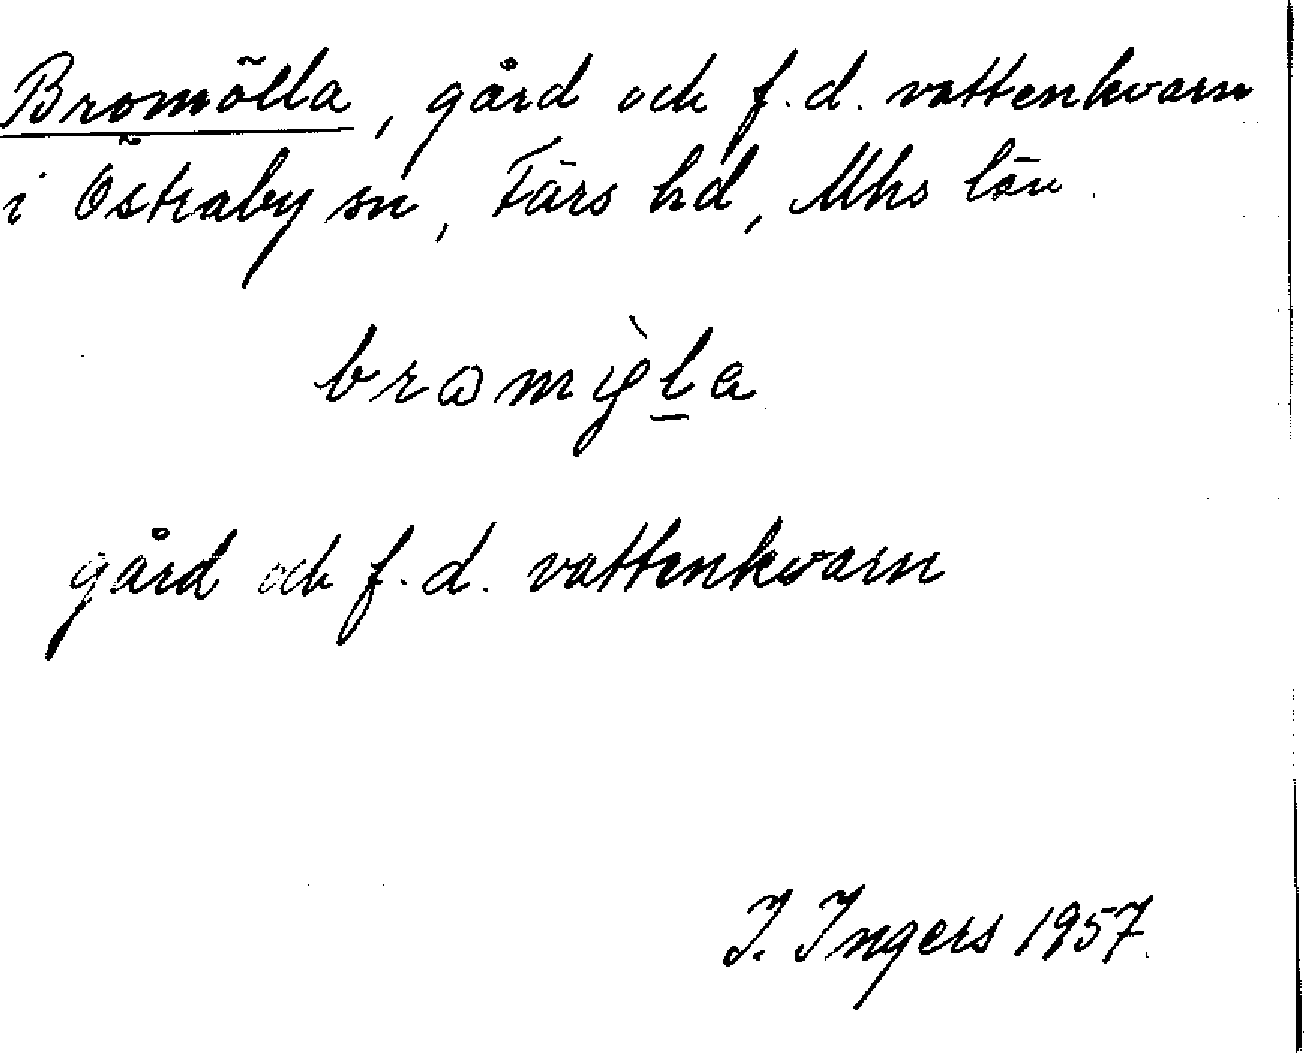 Bromölla, gård och f.d. vattenkvarn
i Östraby sn, Färs hd, Mhs län.
gård och f.d. vattenkvarn
I. Ingers 1957.